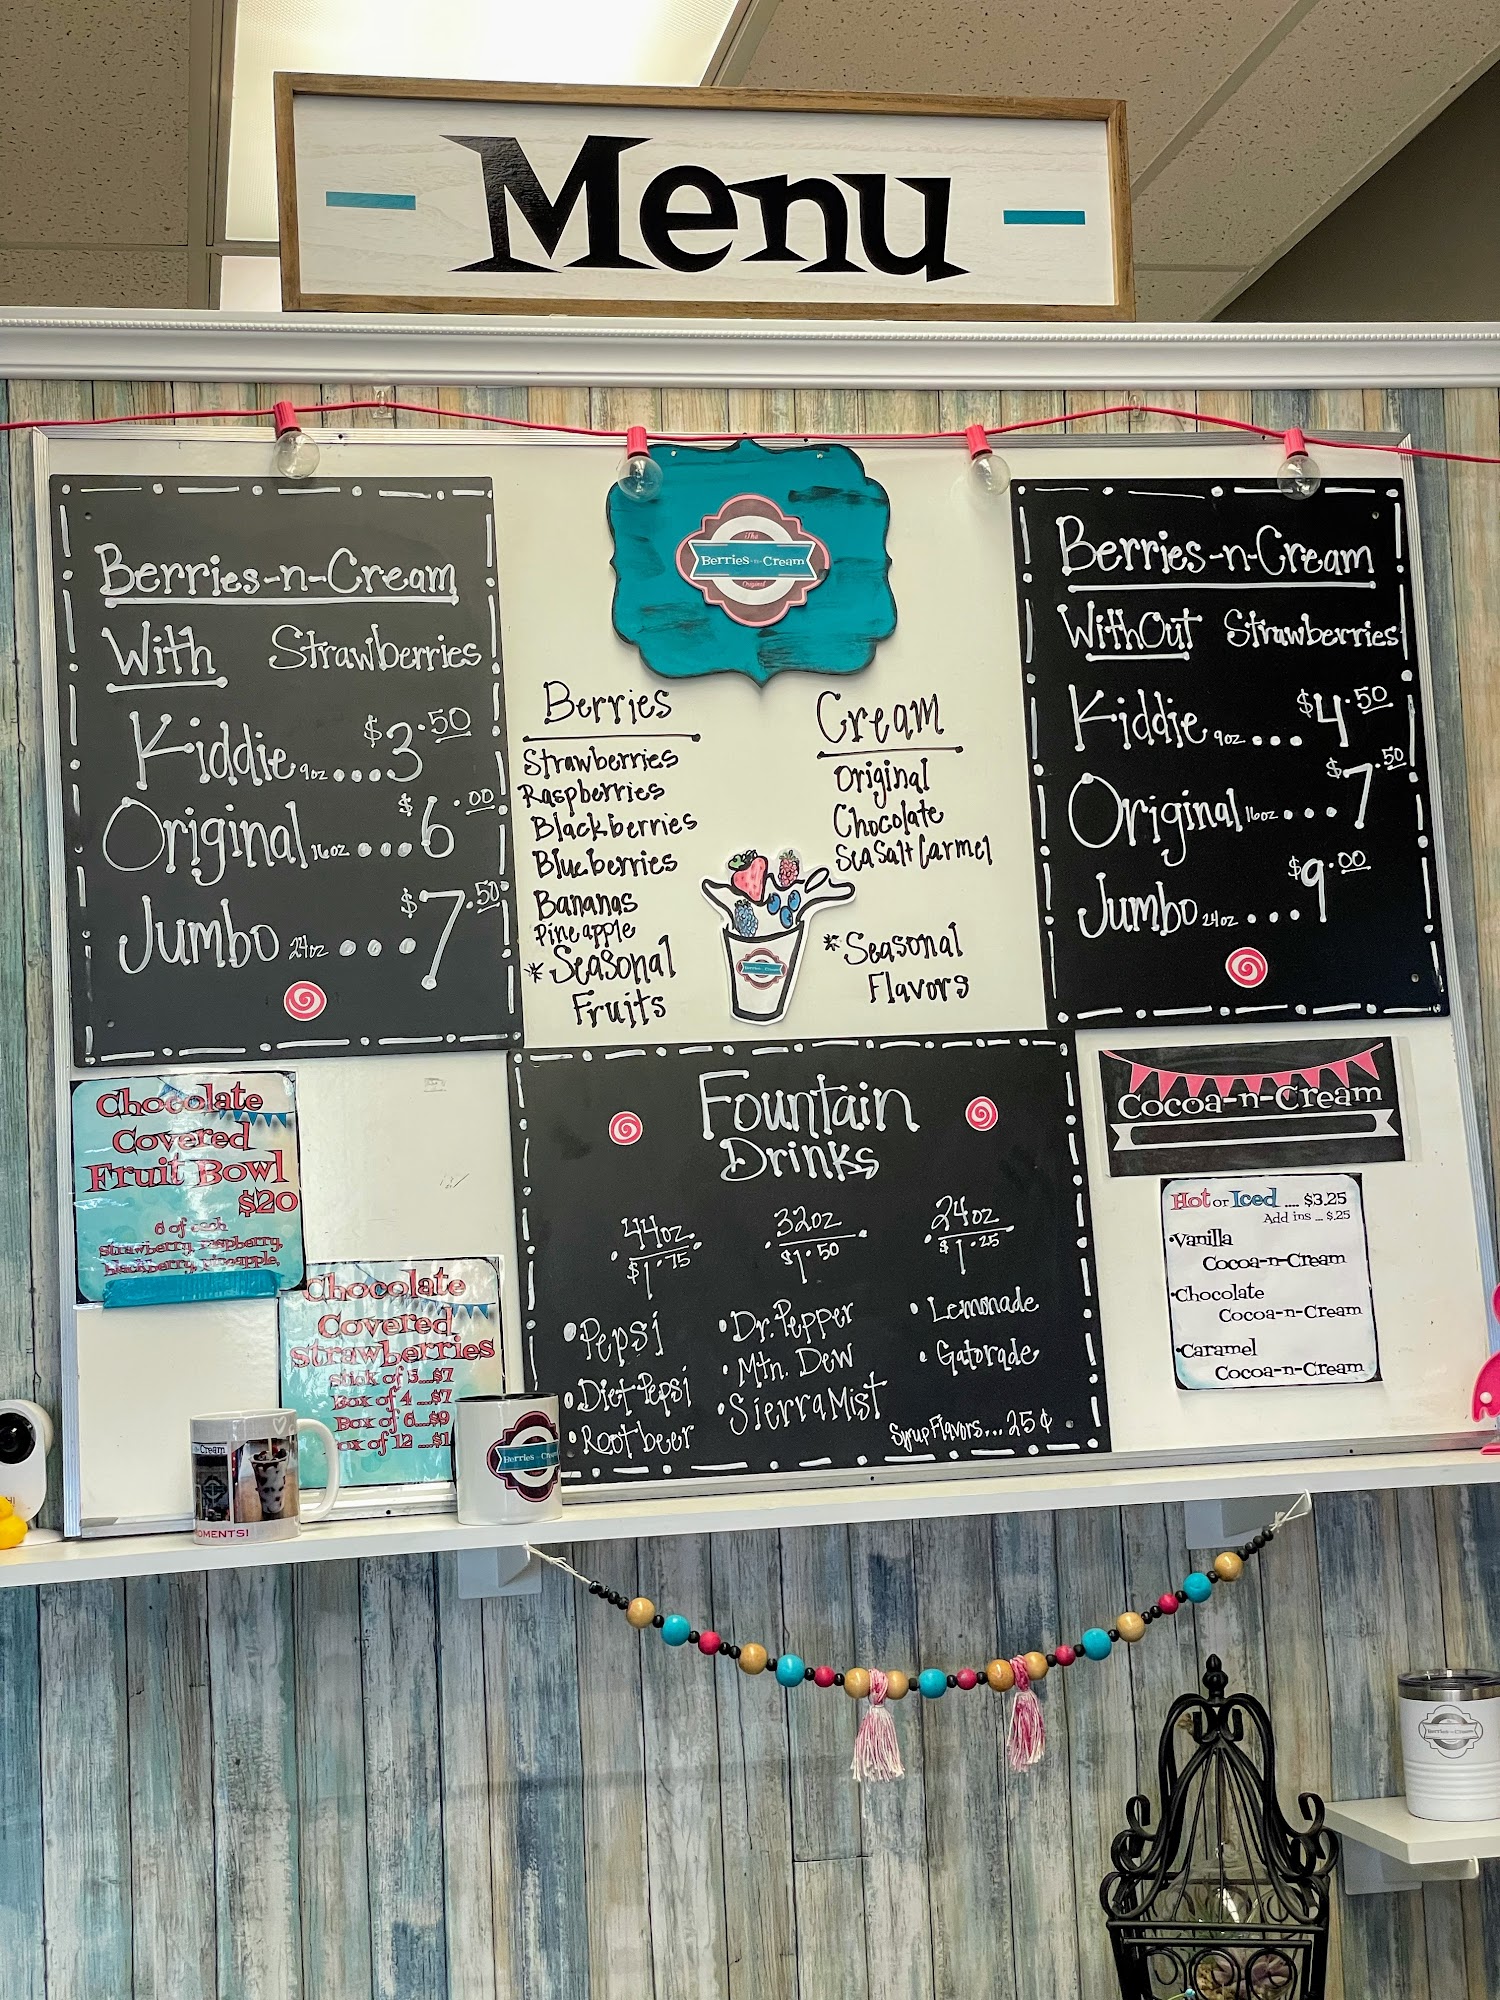 Menu
Berries-n-Cream
With Strawberries
Kiddie 9oz ... $3.50
Original 16oz .... $6.00
Jumbo 24oz .... $7.50
The
Berries-n-Cream
Original
Berries
Strawberries
Raspberries
Blackberries
Blueberries
Bananas
Pineapple
*Seasonal
Fruits
Cream
Original
Chocolate
Sea Salt Carmel
*Seasonal
Flavors
Berries-n-Cream
Berries-n-Cream
WithOut Strawberries
Kiddie 9oz ... $4.50
Original 16oz .... $7.50
Jumbo 24oz .... $9.00
Chocolate
Covered
Fruit Bowl
$20
6 of each
strawberry, raspberry,
blackberry, pineapple,
Chocolate
Covered
strawberries
stick of 3....$7
Box of 4 ....$7
Box of 6....$9
ox of 12 ....$1
Fountain
Drinks
• 44oz •
$1.75
• 32oz •
$1.50
• 24oz •
$1.25
• Pepsi
• Diet Pepsi
• Rootbeer
• Dr. Pepper
• Mtn. Dew
• Sierra Mist
• Lemonade
• Gatorade
Syrup Flavors... 25¢
Cocoa-n-Cream
Hot or Iced .... $3.25
Add ins ... $.25
•Vanilla
Cocoa-n-Cream
•Chocolate
Cocoa-n-Cream
•Caramel
Cocoa-n-Cream
-Cream
OMENTS!
Berries-n-Crea
Berries-n-Cream